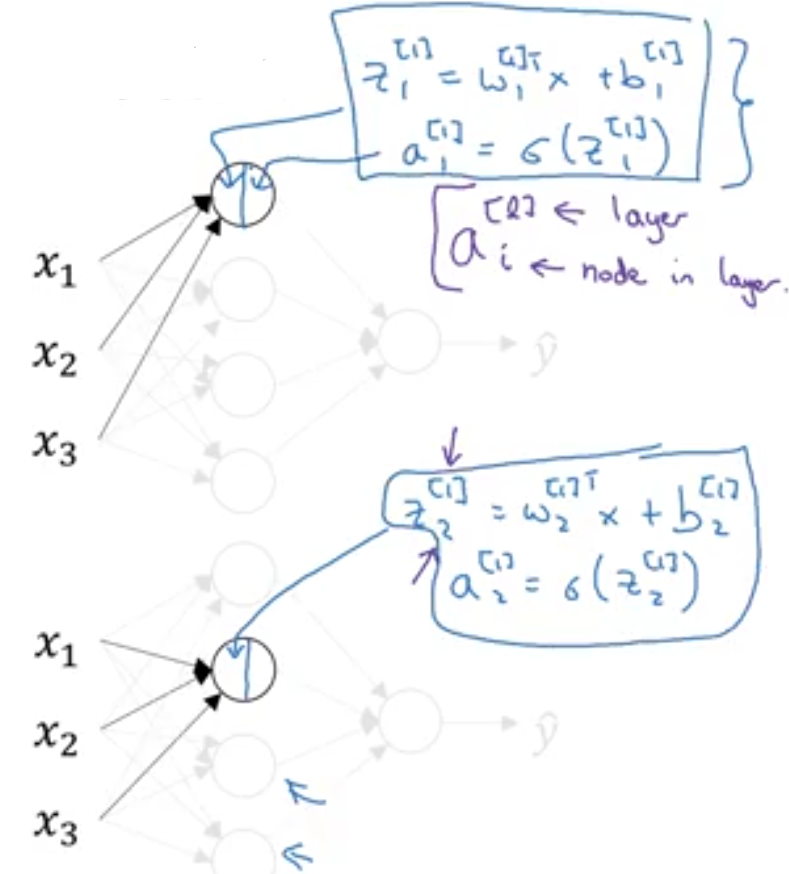 z₁^[1] = w₁^[1]T x + b₁^[1]
a₁^[1] = σ(z₁^[1])
a_i^[l] ← layer
← node in layer.
x₁
x₂
ŷ
x₃
z₂^[1] = w₂^[1]T x + b₂^[1]
a₂^[1] = σ(z₂^[1])
x₁
x₂
ŷ
x₃